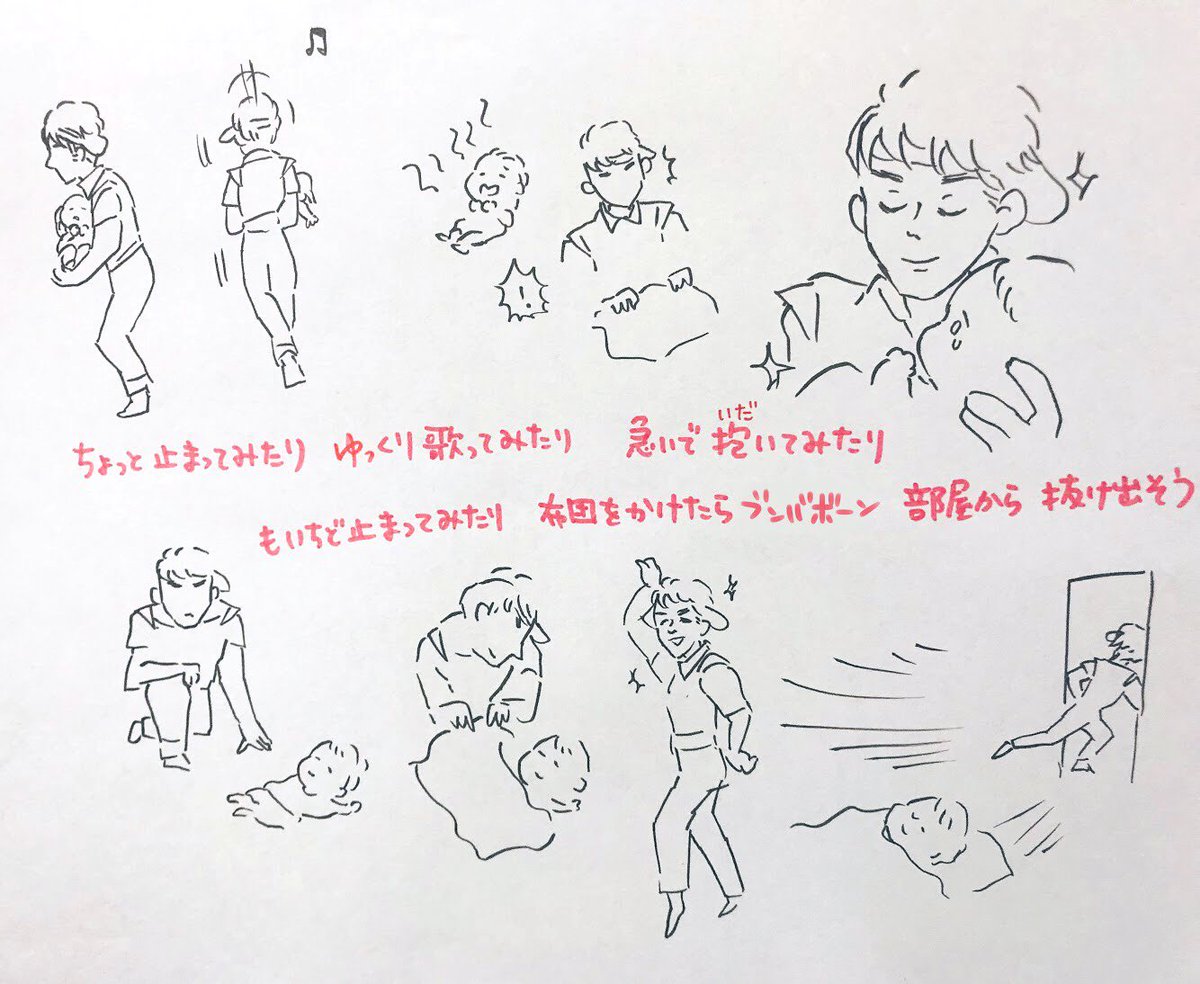 ちょっと止まってみたり ゆっくり歌ってみたり 急いで抱いてみたり
いだ
もいちど止まってみたり 布団をかけたらブンバボーン 部屋から抜け出そう
!